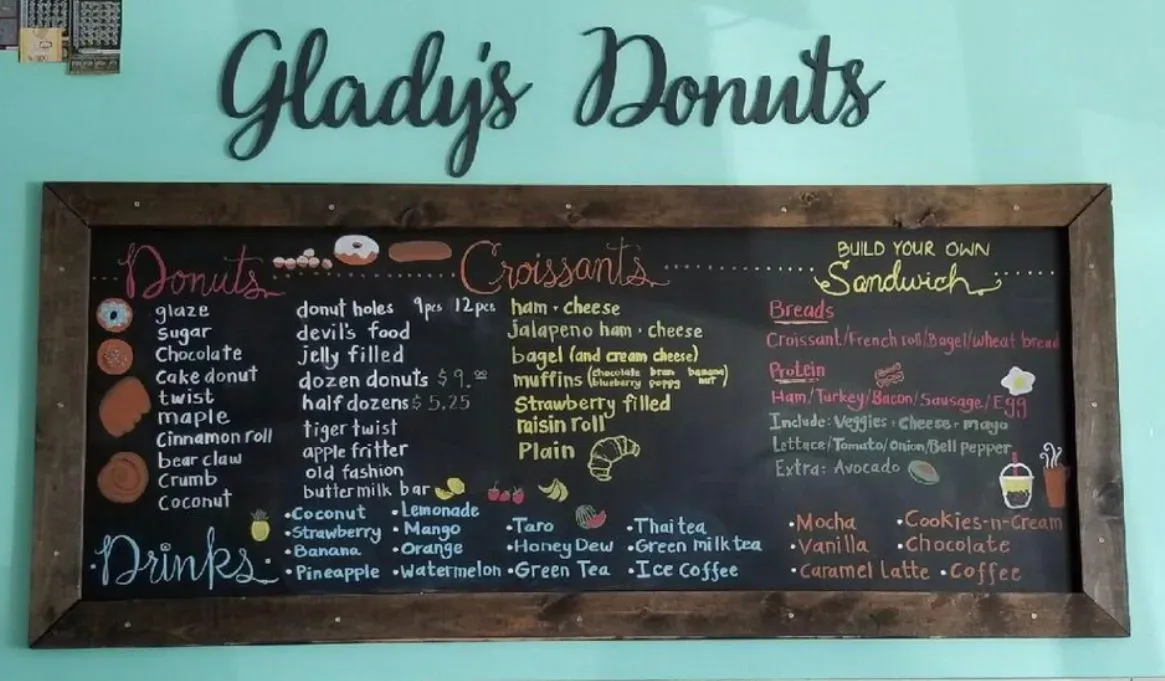 Glady's Donuts
Donuts
glaze
Sugar
Chocolate
Cake donut
twist
maple
Cinnamon roll
bear claw
Crumb
Coconut
donut holes 9pcs 12pcs
devil's food
jelly filled
dozen donuts $9.00
half dozens $5.25
tiger twist
apple fritter
old fashion
buttermilk bar
Croissants
ham + cheese
Jalapeno ham + cheese
bagel (and cream cheese)
muffins (chocolate bran banana
blueberry poppy nut)
Strawberry filled
raisin roll
Plain
BUILD YOUR OWN
Sandwich
Breads
Croissant/French roll/Bagel/wheat bread
Protein
Ham/Turkey/Bacon/Sausage/Egg
Include: Veggies + Cheese + mayo
Lettace/Tomato/Onion/Bell Pepper
Extra: Avocado
Drinks
•Coconut
•Strawberry
•Banana
•Pineapple
•Lemonade
•Mango
•Orange
•Watermelon
•Taro
•Honey Dew
•Green Tea
•Thai tea
•Green milk tea
•Ice Coffee
•Mocha
•Vanilla
•Caramel Latte
•Cookies-n-Cream
•Chocolate
•Coffee